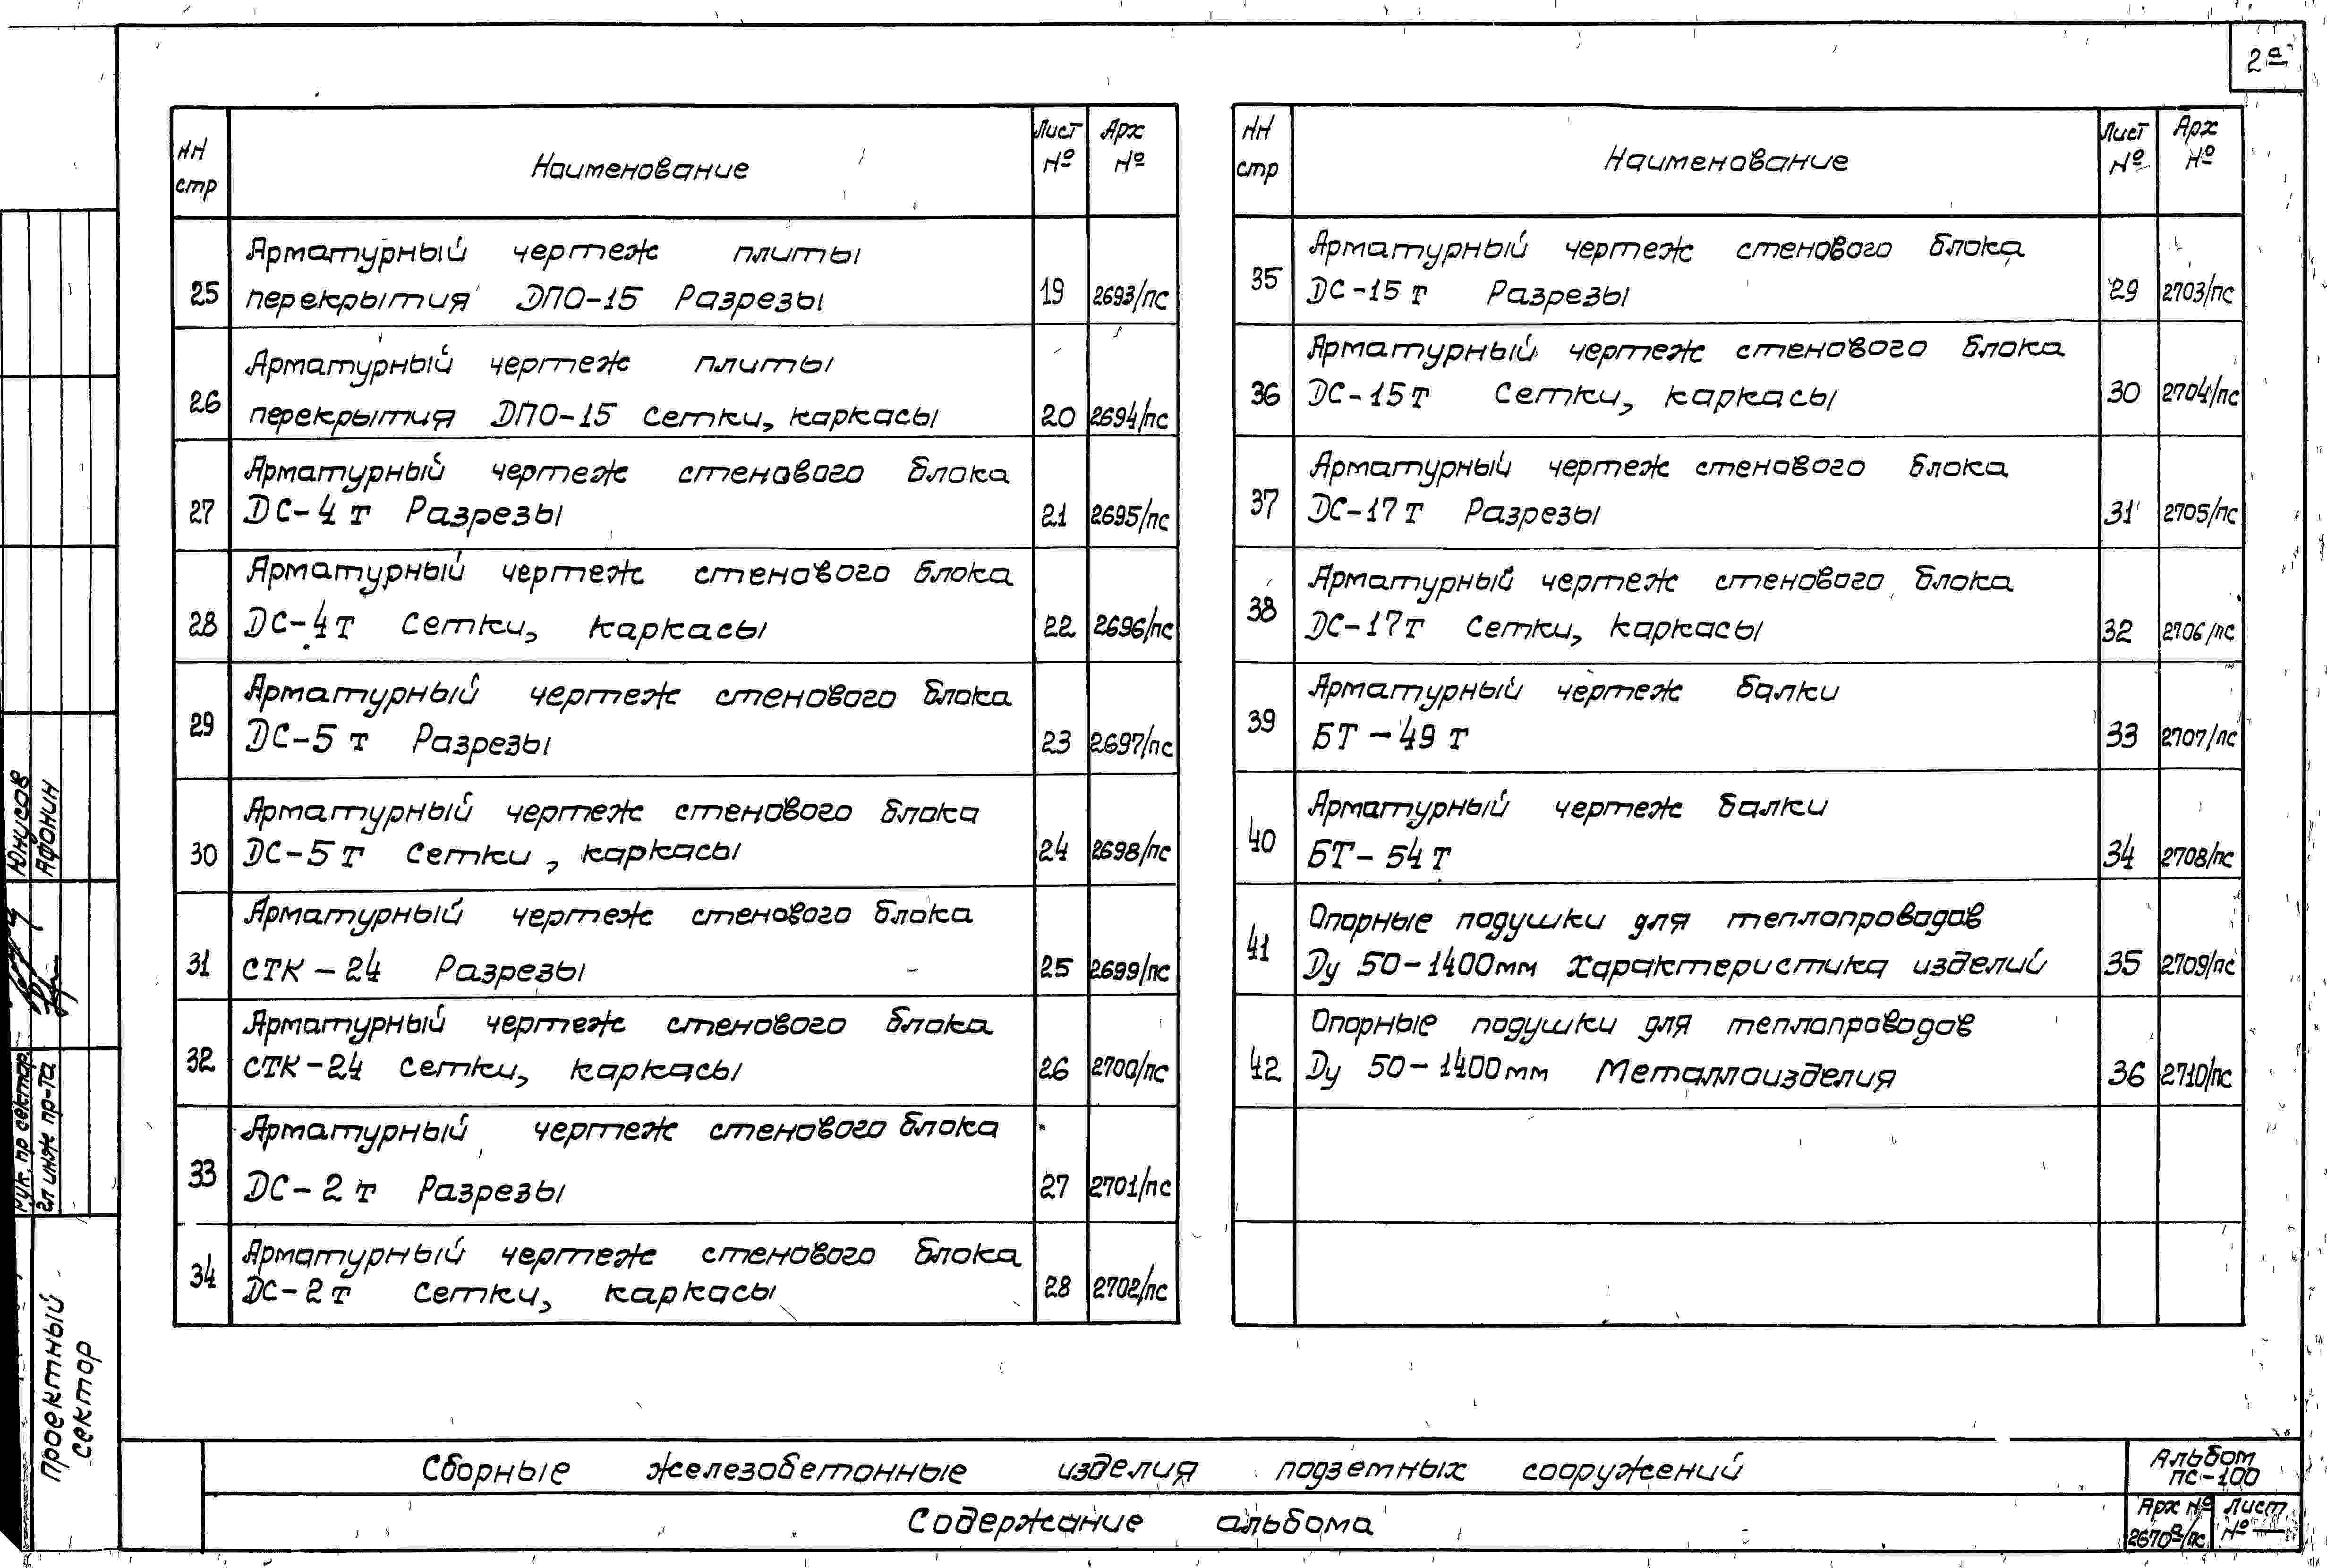 2а
НН стр Наименование Лист № Арх №
Арматурный чертеж плиты
25 перекрытия ДПО-15 Разрезы 19 2693/пс
Арматурный чертеж плиты
26 перекрытия ДПО-15 сетки, каркасы 20 2694/пс
Арматурный чертеж стенового блока
27 ДС-4т Разрезы 21 2695/пс
Арматурный чертеж стенового блока
28 ДС-4т сетки, каркасы 22 2696/пс
Арматурный чертеж стенового блока
29 ДС-5т Разрезы 23 2697/пс
Арматурный чертеж стенового блока
30 ДС-5т сетки, каркасы 24 2698/пс
Арматурный чертеж стенового блока
31 СТК-24 Разрезы 25 2699/пс
Арматурный чертеж стенового блока
32 СТК-24 сетки, каркасы 26 2700/пс
Арматурный чертеж стенового блока
33 ДС-2т Разрезы 27 2701/пс
Арматурный чертеж стенового блока
34 ДС-2т сетки, каркасы 28 2702/пс
НН стр Наименование Лист № Арх №
Арматурный чертеж стенового блока
35 ДС-15т Разрезы 29 2703/пс
Арматурный чертеж стенового блока
36 ДС-15т Сетки, каркасы 30 2704/пс
Арматурный чертеж стенового блока
37 ДС-17т Разрезы 31 2705/пс
Арматурный чертеж стенового блока
38 ДС-17т сетки, каркасы 32 2706/пс
Арматурный чертеж балки
39 БТ-49т 33 2707/пс
Арматурный чертеж балки
40 БТ-54т 34 2708/пс
Опорные подушки для теплопроводов
41 Ду 50-1400мм Характеристика изделий 35 2709/пс
Опорные подушки для теплопроводов
42 Ду 50-1400мм Металлоизделия 36 2710/пс
Юнусов
Афонин
рук. пр сектор.
Гл инж пр-та
Проектный
сектор
Сборные железобетонные изделия подземных сооружений
Содержание альбома
Альбом
ПС-100
Арх № Лист
2670а/пс № —